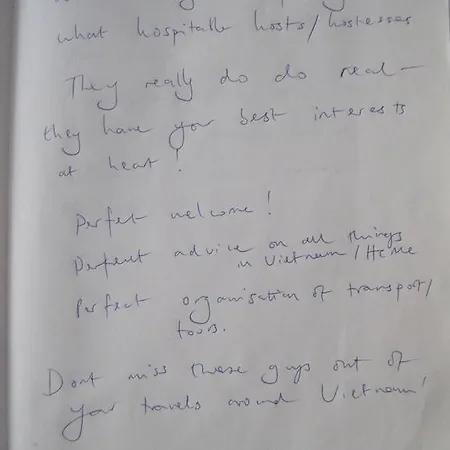 what hospitable hosts/hostesses
They really do do real —
they have your best interests
at heart!
Perfect welcome!
Perfect advice on all things
in Vietnam / Home
Perfect organisation of transport/
tours.
Dont miss these guys out of
your travels around Vietnam!